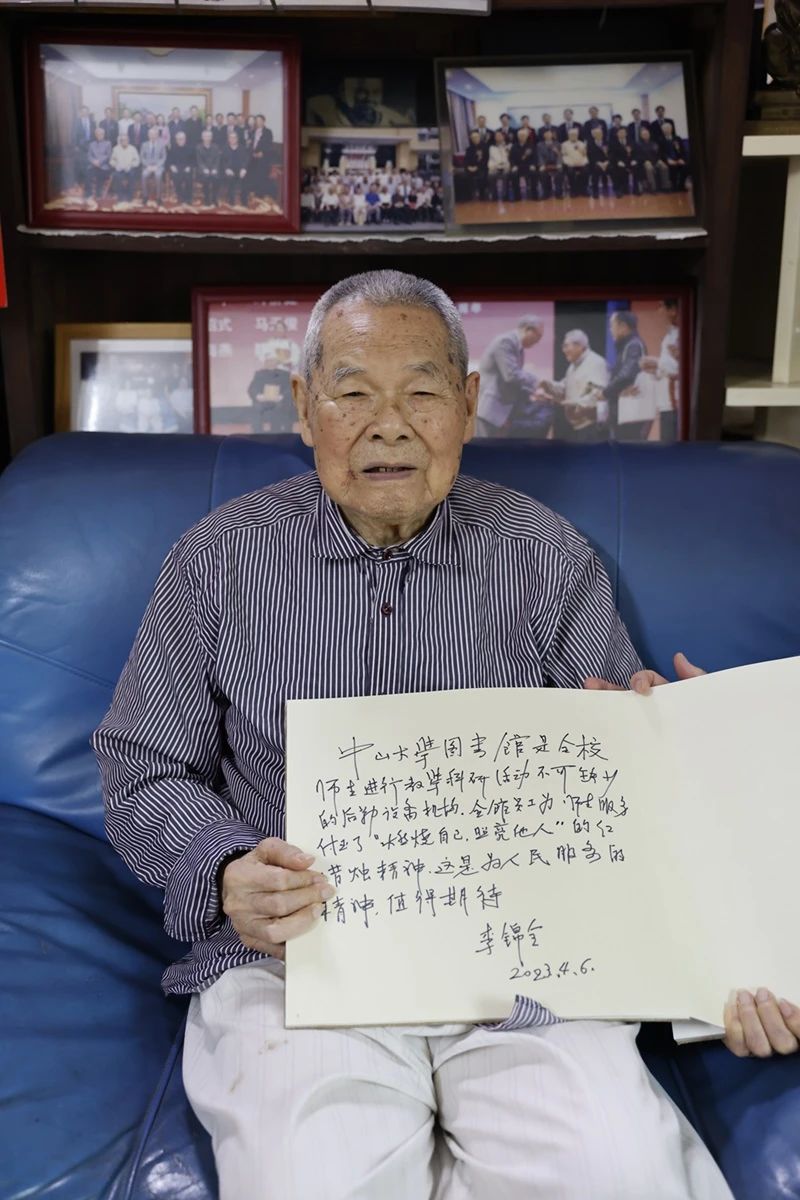 式 马
中山大学图书馆是全校
师生进行教学科研活动不可缺少
的后勤设备机构。全馆员工为师生服务
付出了“燃烧自己，照亮他人”的红
蜡烛精神。这是为人民服务的
精神，值得期待
李锦全
2023.4.6.